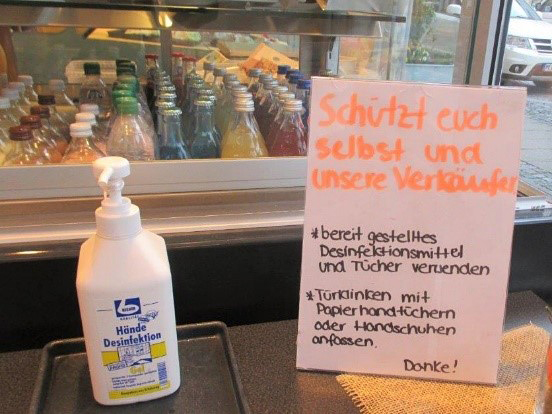 Schützt euch
selbst und
unsere Verkäufer
* bereit gestelltes
Desinfektionsmittel
und Tücher verwenden
* Türklinken mit
Papierhandtüchern
oder Handschuhen
anfassen.
Danke!
Hände
Desinfektion
Gel